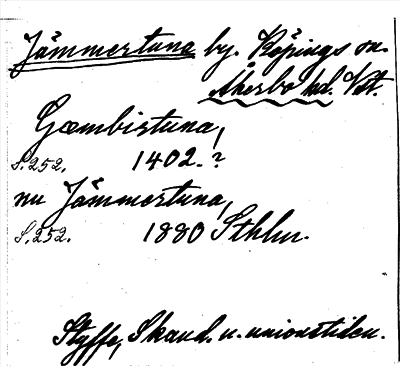 Jämmertuna by. Köpings sn.
Åkerbo hd. Vstt.
Gæmbistuna,
S. 252. 1402.?
nu Jämmertuna,
S. 252. 1880 Sthlm.
Styffe, Skand. u. unionstiden.